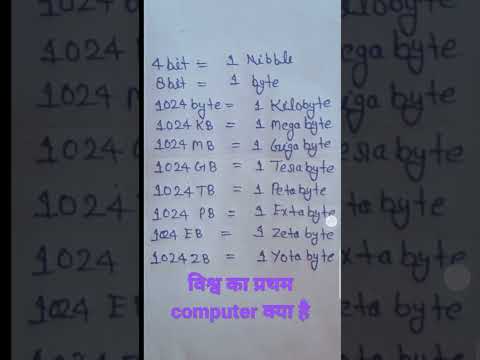 4 bit = 1 Nibble
8 bit = 1 byte
1024 byte = 1 Kilobyte
1024 KB = 1 Megabyte
1024 MB = 1 Gigabyte
1024 GB = 1 Terabyte
1024 TB = 1 Petabyte
1024 PB = 1 Extabyte
1024 EB = 1 Zetabyte
1024 ZB = 1 Yotabyte
विश्व का प्रथम
computer क्या है